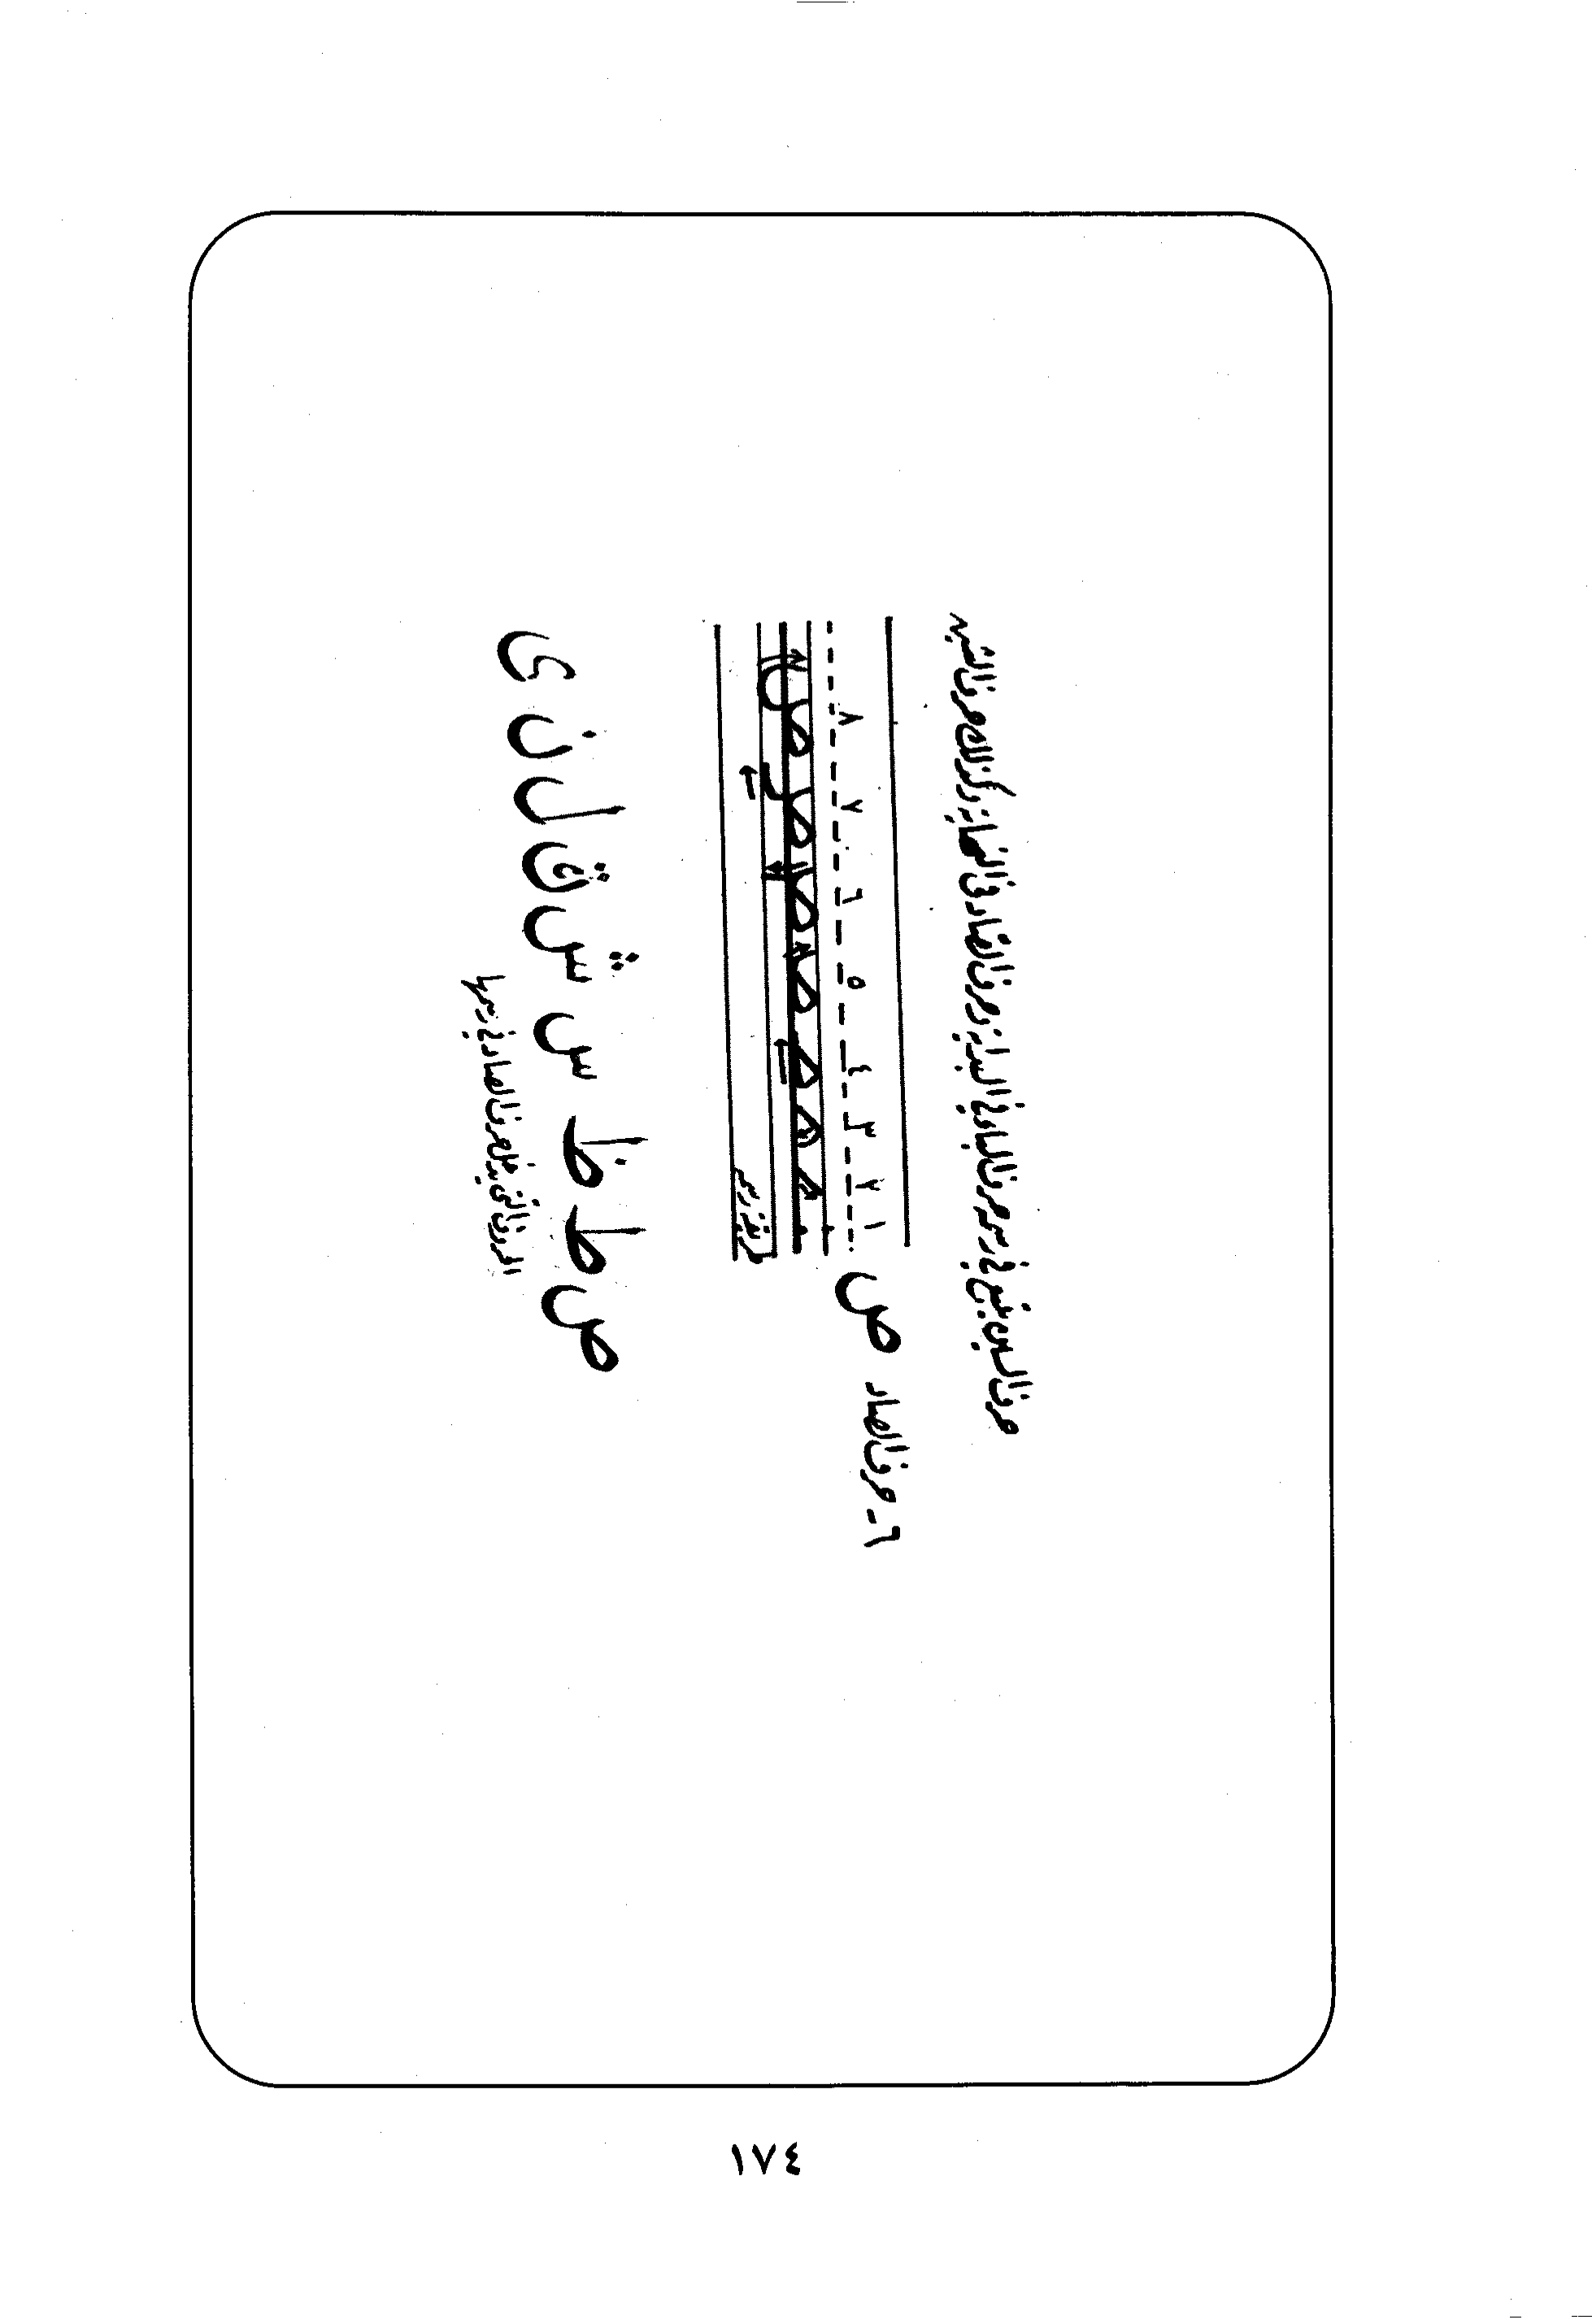 حرف السين يتبع في رسم حرف الباء في البداية وحرف الصاد في النهاية وكذلك حرف الشين
٦ ـ حرف الصاد ص
١ ٢ ٣ ٤ ٥ ٦ ٧ ٨
طريقة رسم
ص ط ظ س ش ق ل ن ى
الحروف التي تتبع حرف الصاد في رسمها
١٧٤